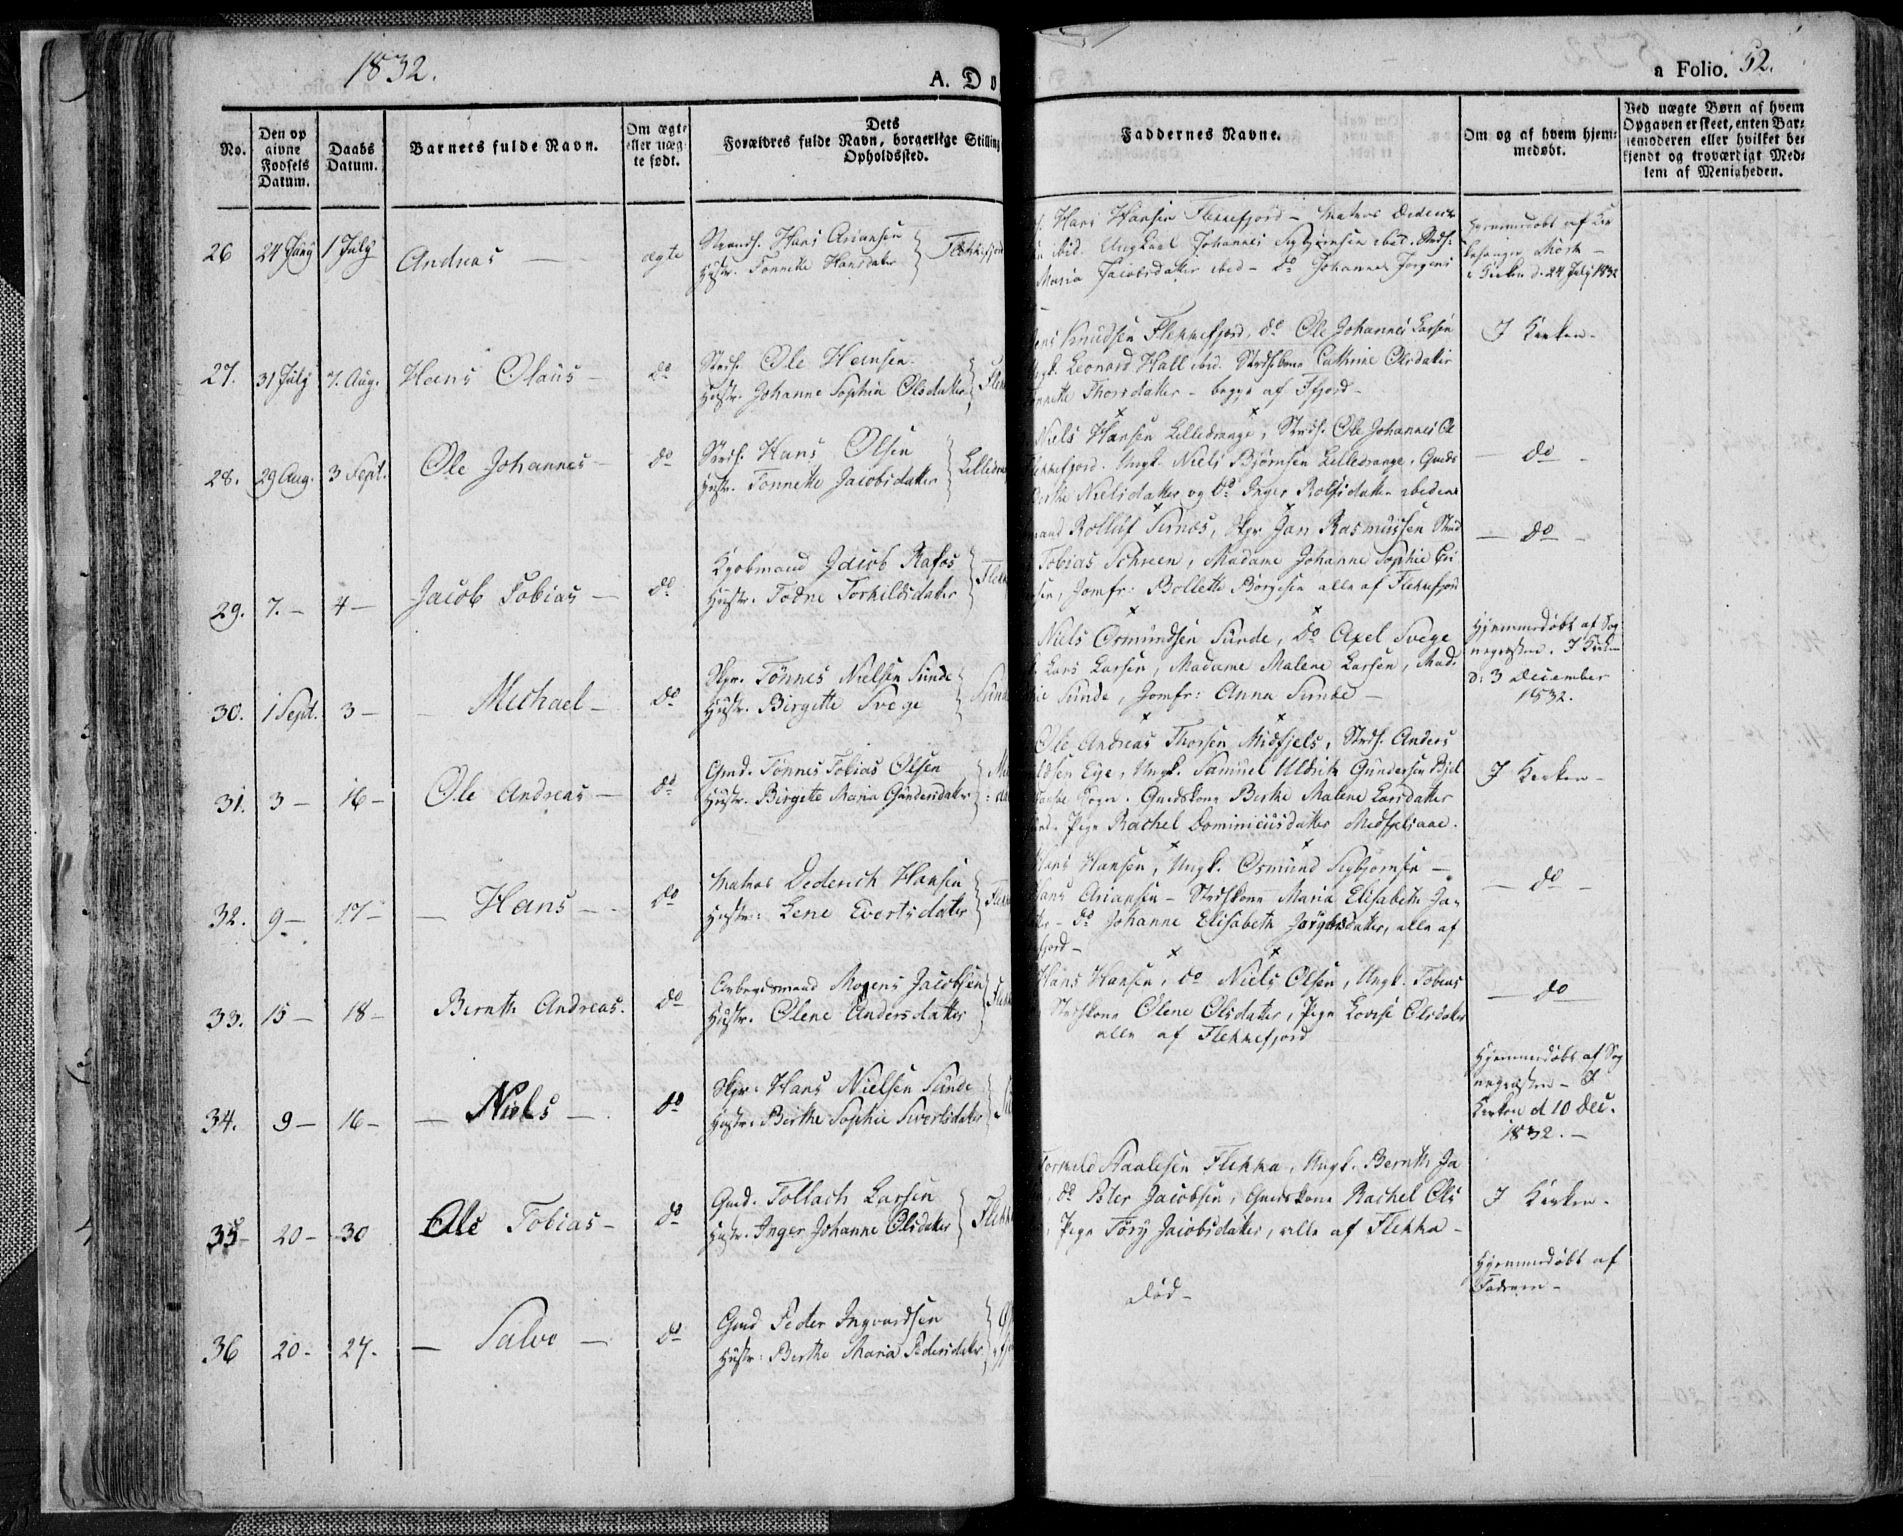 1832.
A. Do
a Folio. 52.
No.
Den op
givne
Fødsels
Datum.
Daabs
Datum.
Barnets fulde Navn.
Om ægte
eller uæg-
te født.
Dets
Forældres fulde Navn, borgerlige Stilling
Opholdssted.
Faddernes Navne.
Om og af hvem hjem-
medøbt.
Ved uægte Børn af hvem
Opgaven er skeet, enten Bar-
nemoderen eller hvilket be-
kjendt og troværdigt Med-
lem af Menigheden.
26 24 Juny 1 July Andreas — ægte
Strands. Hans Ariansen
Hustr. Tonnette Hansdatter
Hans Hansen Flekkefjord — Matros Dederich
ibid. Ungkarl Johannes Sigbjørnsen ibid. Strds:
Maria Jacobsdatter ibid — do Johanne Jørgens
Hjemmedøbt af Kir
kesanger Mørk —
i Kirken d. 24 July 1832
27. 31 July 7. Aug. Hans Olaus — do
Strds. Ole Hansen
Hustr. Johanne Sophia Olsdatter
Knudsen Flekkefjord, do Ole Johannes Larsen
Leonard Hall ibid. Strdskone Cathrine Olsdatter
Thorsdatter — begge af Ffjord —
I Kirken —
28. 29 Aug. 3 Sept. Ole Johannes — do
Strds. Hans Olsen
Hustr. Tonnette Jacobsdatter
Niels Hansen Lilledrange, Strds. Ole Johannes Ol
Flekkefjord. Ungk. Niels Bjørnsen Lilledrange, Gmds
Nielsdatter og do Inger Rolfsdatter ibidem
— do —
29. 7. — 4 — Jacob Tobias — do
Kjøbmand Jacob Rafos
Hustr. Todne Torkildsdatter
Rolluf Sirnæs, Skpr Jan Rasmussen Stud
Tobias Schreen, Madame Johanne Sophie
Jomfr: Bollette Børgesen alle af Flekkefjord
— do —
30. 1 Sept. 3 — — Michael — do
Skpr. Tønnes Nielsen Sunde
Hustr. Birgitte Svege
Niels Osmundsen Sunde, do Axel Svege
Lars Larsen, Madame Malene Larsen, Mad.
Sunde, Jomfr: Anna
Hjemmedøbt af Sog
nepræsten. I Kirken
d: 3 December
1832.
31. 3 — 16 — Ole Andreas — do
Gmd. Tønnes Tobias Olsen
Hustr. Birgitte Maria Gundersdatter
Ole Andreas Thorsen Midfjels, Strds. Anders
Eye, Ungk. Samuel Uldrik Gundersen
Sogn. Gmdskone Berthe Malene Larsdatter
Pige Rachel Dominicusdatter Medfjelsaae.
I Kirken —
32. 9 — 17 — — Hans — do
Matros Dederich Hansen
Hustr: Lene Evertsdatter
Hans Hansen, Ungk. Osmund Sigbjørnsen —
Hans Ariansen — Strdskone Maria Elisabeth Ja-
— do Johanne Elisabeth Jørgensdatter, alle af
— do —
33. 15 — 18 — Bernth Andreas. do
Arbeydsmand Mogens Jacobsen
Hustr. Olene Andersdatter
Hans Hansen, do Niels Olsen, Ungk. Tobias
Strdskone Olene Olsdatter, Pige Lovise Olsdatter
alle af Flekkefjord
— do
34. 9 — 16 — — Niels — do
Skpr. Hans Nielsen Sunde
Hustr. Berthe Sophie Sivertsdatter
Hjemmedøbt af Sog
nepræsten — I
Kirken d 10 Dec.
1832. —
35 — 20 — 30 Ole Tobias — do
Gmd. Tollach Larsen
Hustr. Inger Johanne Olsdatter
Staalesen Flekka, Ungk. Bernth Ja
do Peter Jacobsen, Gmdskone Rachel Ols
Pige Tory Jacobsdatter, alle af Flekka —
I Kirken —
36 20 — 27. — Salve — do
Gmd Peder Ingvardsen
Hustr: Berthe Maria Pedersdatter
Død —
Hjemmedøbt af
Faderen —